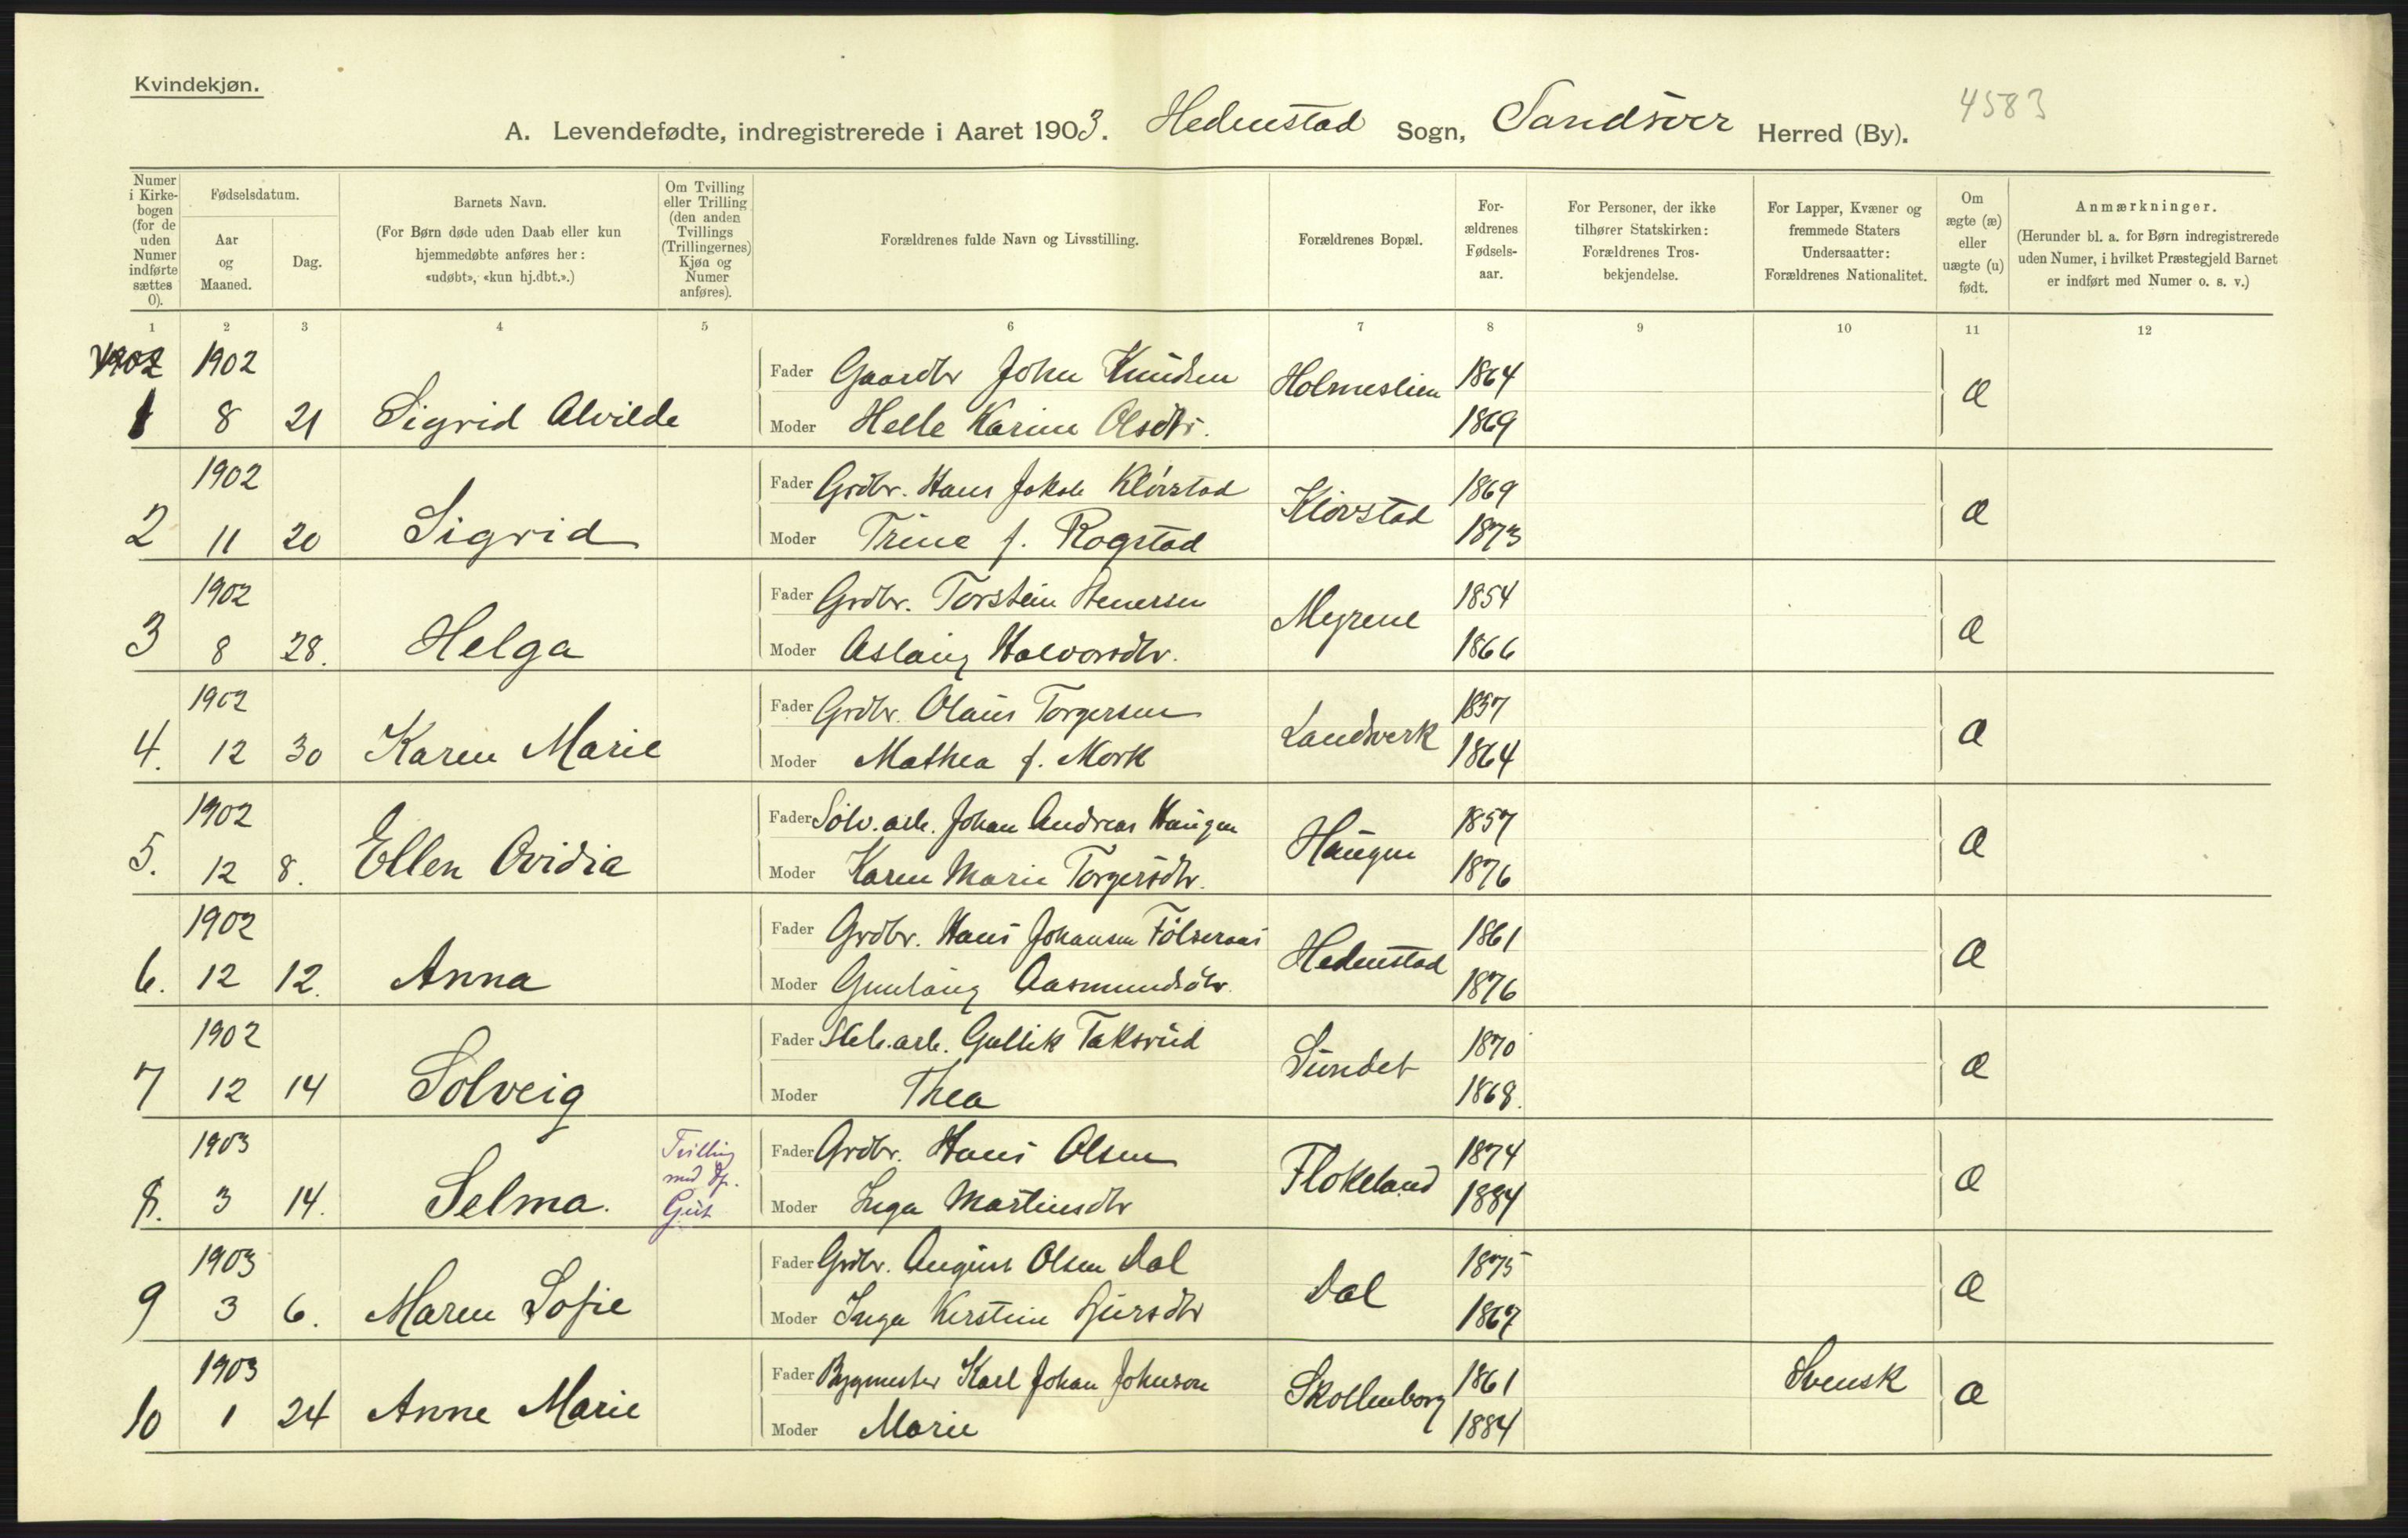 Kvindekjøn.
4583
A. Levendefødte, indregistrerede i Aaret 1903. Hedenstad Sogn, Sandsver Herred (By).
Numer i Kirkebogen (for de uden Numer indførte sættes 0).
Fødselsdatum.
Aar og Maaned.
Dag.
Barnets Navn.
(For Børn døde uden Daab eller kun hjemmedøbte anføres her: «udøbt», «kun hj.dbt.».)
Om Tvilling eller Trilling (den anden Tvillings (Trillingernes) Kjøn og Numer anføres).
Forældrenes fulde Navn og Livsstilling.
Forældrenes Bopæl.
Forældrenes Fødselsaar.
For Personer, der ikke tilhører Statskirken: Forældrenes Trosbekjendelse.
For Lapper, Kvæner og fremmede Staters Undersaatter: Forældrenes Nationalitet.
Om ægte (æ) eller uægte (u) født.
Anmærkninger.
(Herunder bl. a. for Børn indregistrerede uden Numer, i hvilket Præstegjeld Barnet er indført med Numer o. s. v.)
1 2 3 4 5 6 7 8 9 10 11 12
1902 1902 Fader Gaardbr John Knudsen Holmeslien 1864
1 8 21 Sigrid Alvilde Moder Helle Karine Olsdtr. 1869 æ
1902 Fader Grdbr. Hans Jakob Kløvstad Kløvstad 1869
2 11 20 Sigrid Moder Trine f. Rogstad 1873 æ
1902 Fader Grdbr. Torstein Stenersen Myrene 1854
3 8 28. Helga Moder Aslaug Halvorsdtr. 1866 æ
1902 Fader Grdbr. Olaus Torgersen Landverk 1857
4. 12 30 Karen Marie Moder Mathea f. Mork 1864 æ
1902 Fader Sølv.arb. Johan Andreas Haugen Haugen 1857
5. 12 8. Ellen Ovidia Moder Karen Marie Torgersdtr. 1876 æ
1902 Fader Grdbr. Hans Johansen Følseraas Hedenstad 1861
6. 12 12. Anna Moder Gunlaug Aasmundsdtr. 1876 æ
1902 Fader arb. Gullik Taksrud Sundet 1870
7 12 14 Solveig Moder Thea 1868. æ
1903 Tvilling med Fader Grdbr. Hans Olsen Flokeland 1874
8. 3 14. Selma. Gut Moder Inga Martinsdtr 1884 æ
1903 Fader Grdbr. August Olsen Dal Dal 1875
9 3 6. Maren Sofie Moder Inga Kerstine 1867 æ
1903 Fader Bygmester Karl Johan Johnson Skollenborg 1861 Svensk
10 1 24 Anne Marie Moder Marie 1884 æ